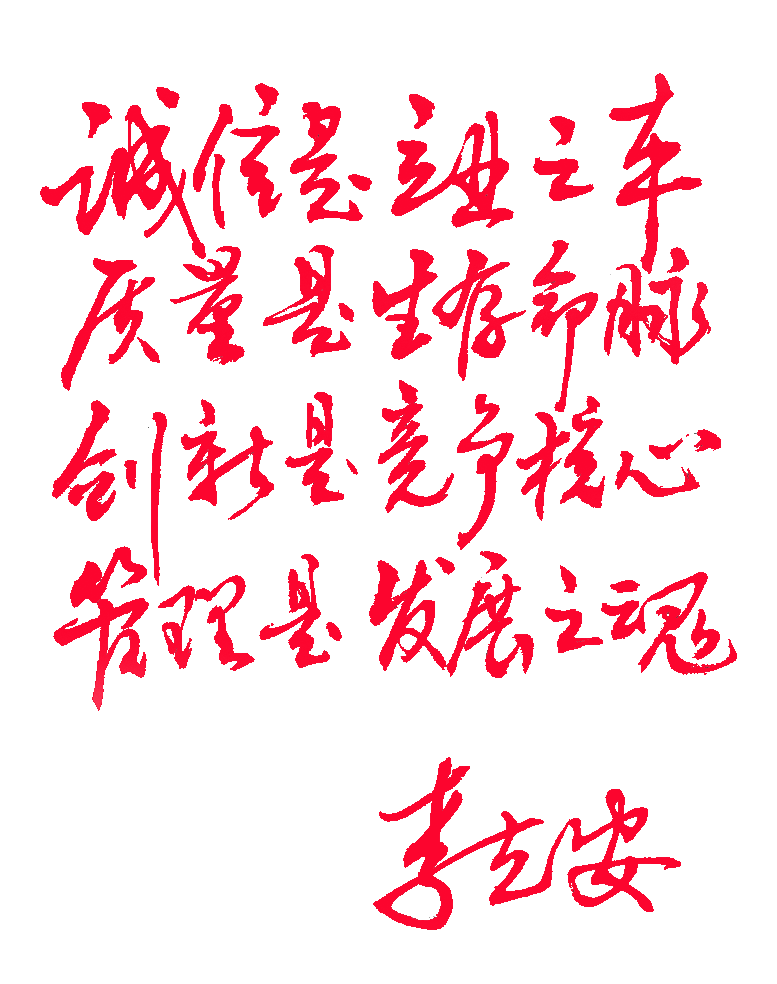 诚信是立业之本
质量是生存命脉
创新是竞争核心
管理是发展之魂
李立安